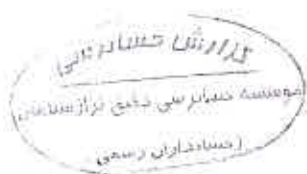 گزارش حسابرسی
موسسه حسابرسی دقیق تراز سپاهان
(حسابداران رسمی